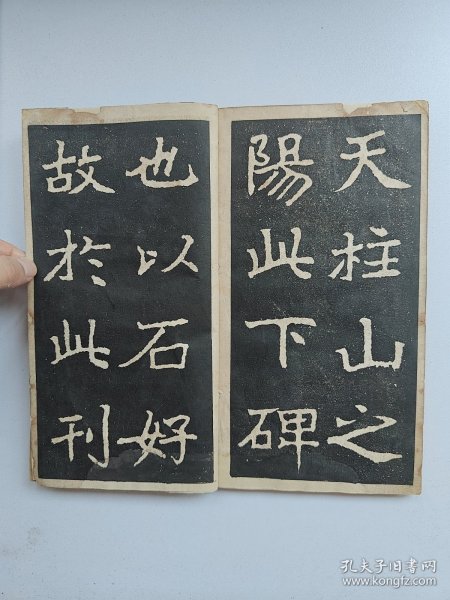 天柱山之
陽此下碑
也以石好
故於此刊
孔夫子旧书网
www.kongfz.com